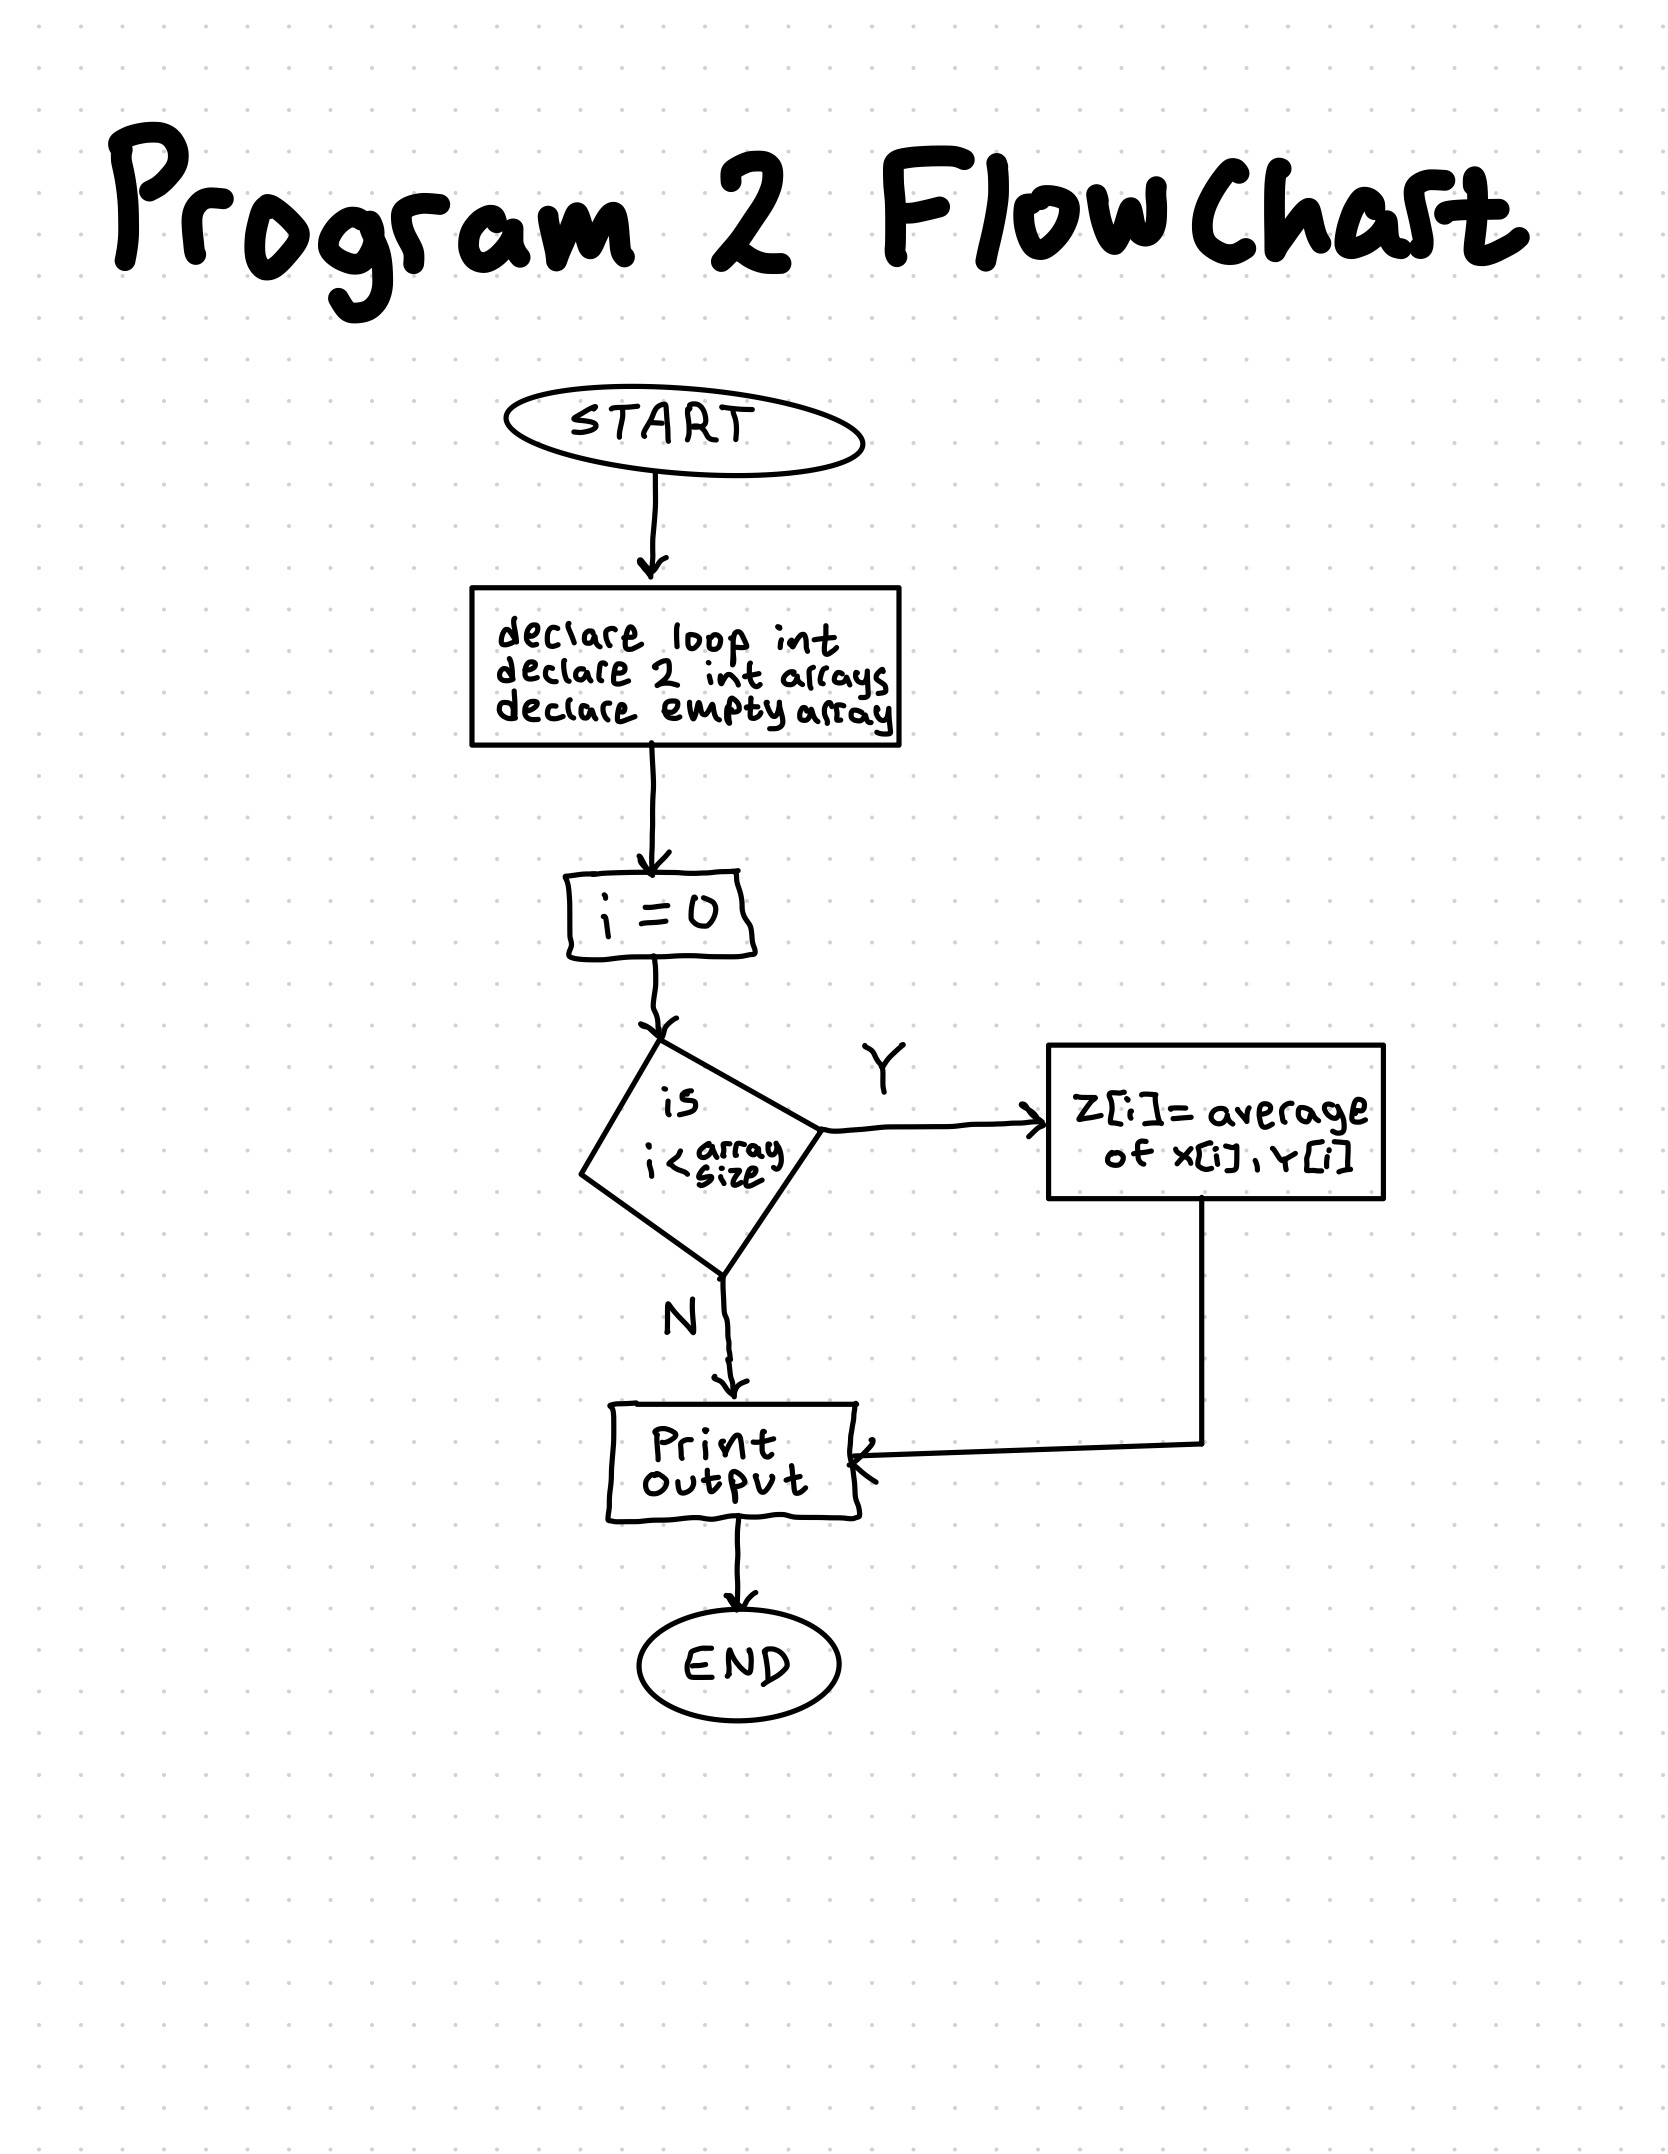 Program 2 FlowChart
START
declare loop int
declare 2 int arrays
declare empty array
i = 0
is
i < array
size
Y
Z[i] = average
of X[i], Y[i]
N
Print
output
END